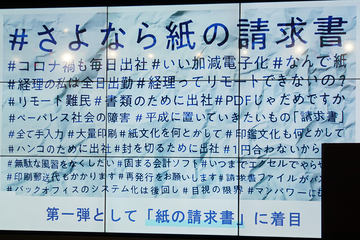 #さよなら紙の請求書
#コロナ禍も毎日出社#いい加減電子化#なんで紙
#経理の私は全日出勤#経理ってリモートできないの?
#リモート難民#書類のために出社#PDFじゃだめですか
#ペーパレス社会の障害 #平成に置いていきたいもの「請求書」
#全て手入力#大量印刷#紙文化を何とかして#印鑑文化も何とかして
#ハンコのために出社#封を切るために出社#1円合わないから
#無駄な風習をなくしたい#固まる会計ソフト#いつまでエクセルでやらせ
#印刷郵送代もかかります#再発行をお願いします#請求書ファイルがパ
#バックオフィスのシステム化は後回し#目視の限界#マンパワーにも
第一弾として「紙の請求書」に着目